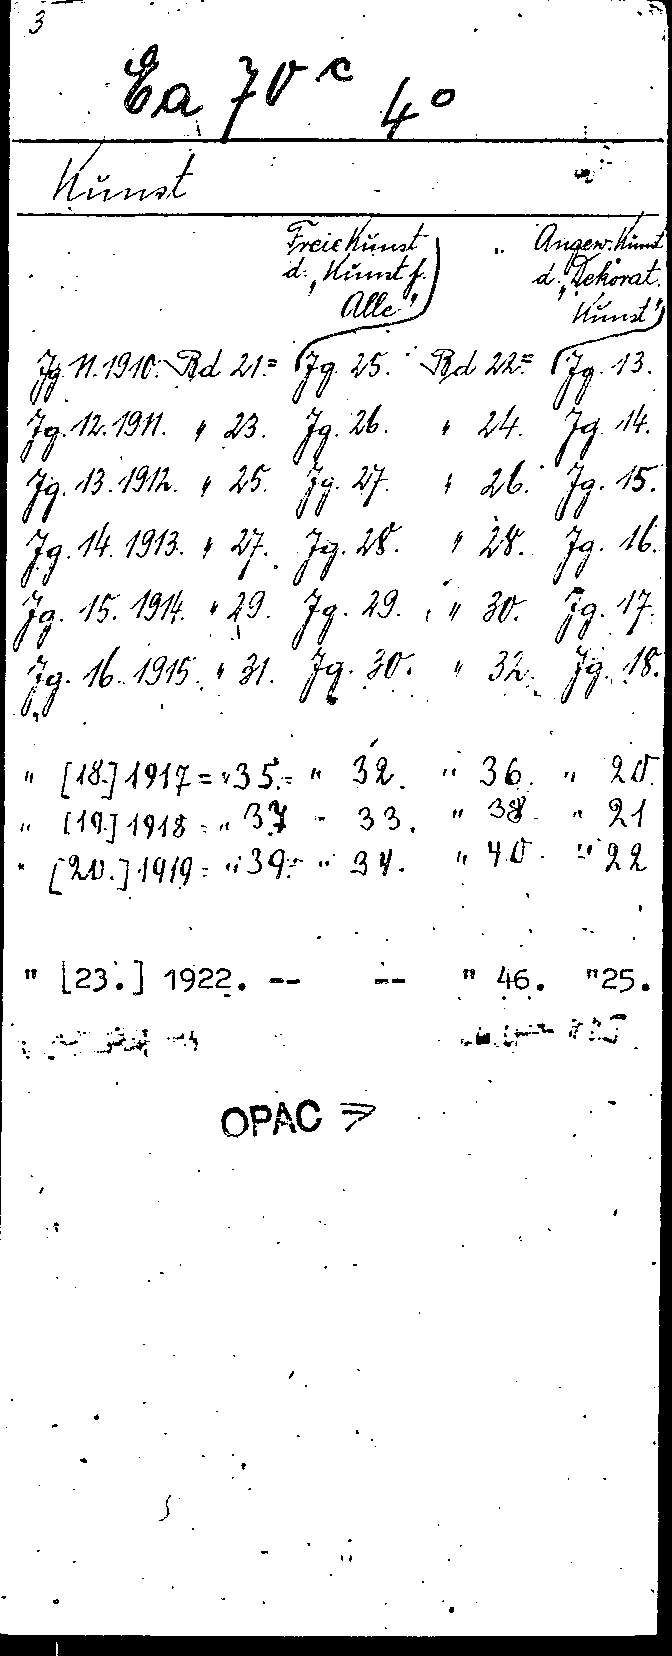 3
Ea 70 c 4°
Kunst
Freie Kunst " Angew. Kunst
d. „Kunst f. d. „Dekorat.
Alle" Kunst"
Jg. 11. 1910. Bd 21 = Jg. 25. Bd 22 = Jg. 13.
Jg. 12. 1911. " 23. Jg. 26. " 24. Jg. 14.
Jg. 13. 1912. " 25. Jg. 27. " 26. Jg. 15.
Jg. 14. 1913. " 27. Jg. 28. " 28. Jg. 16.
Jg. 15. 1914. " 29. Jg. 29. " 30. Jg. 17.
Jg. 16. 1915. " 31. Jg. 30. " 32. Jg. 18.
" [18.] 1917 = " 35. = " 32. " 36. " 20.
" [19.] 1918 = " 37 - 33. " 38. " 21
" [20.] 1919 = " 39. = " 34. " 40. " 22
" [23.] 1922. -- -- " 46. "25.
OPAC